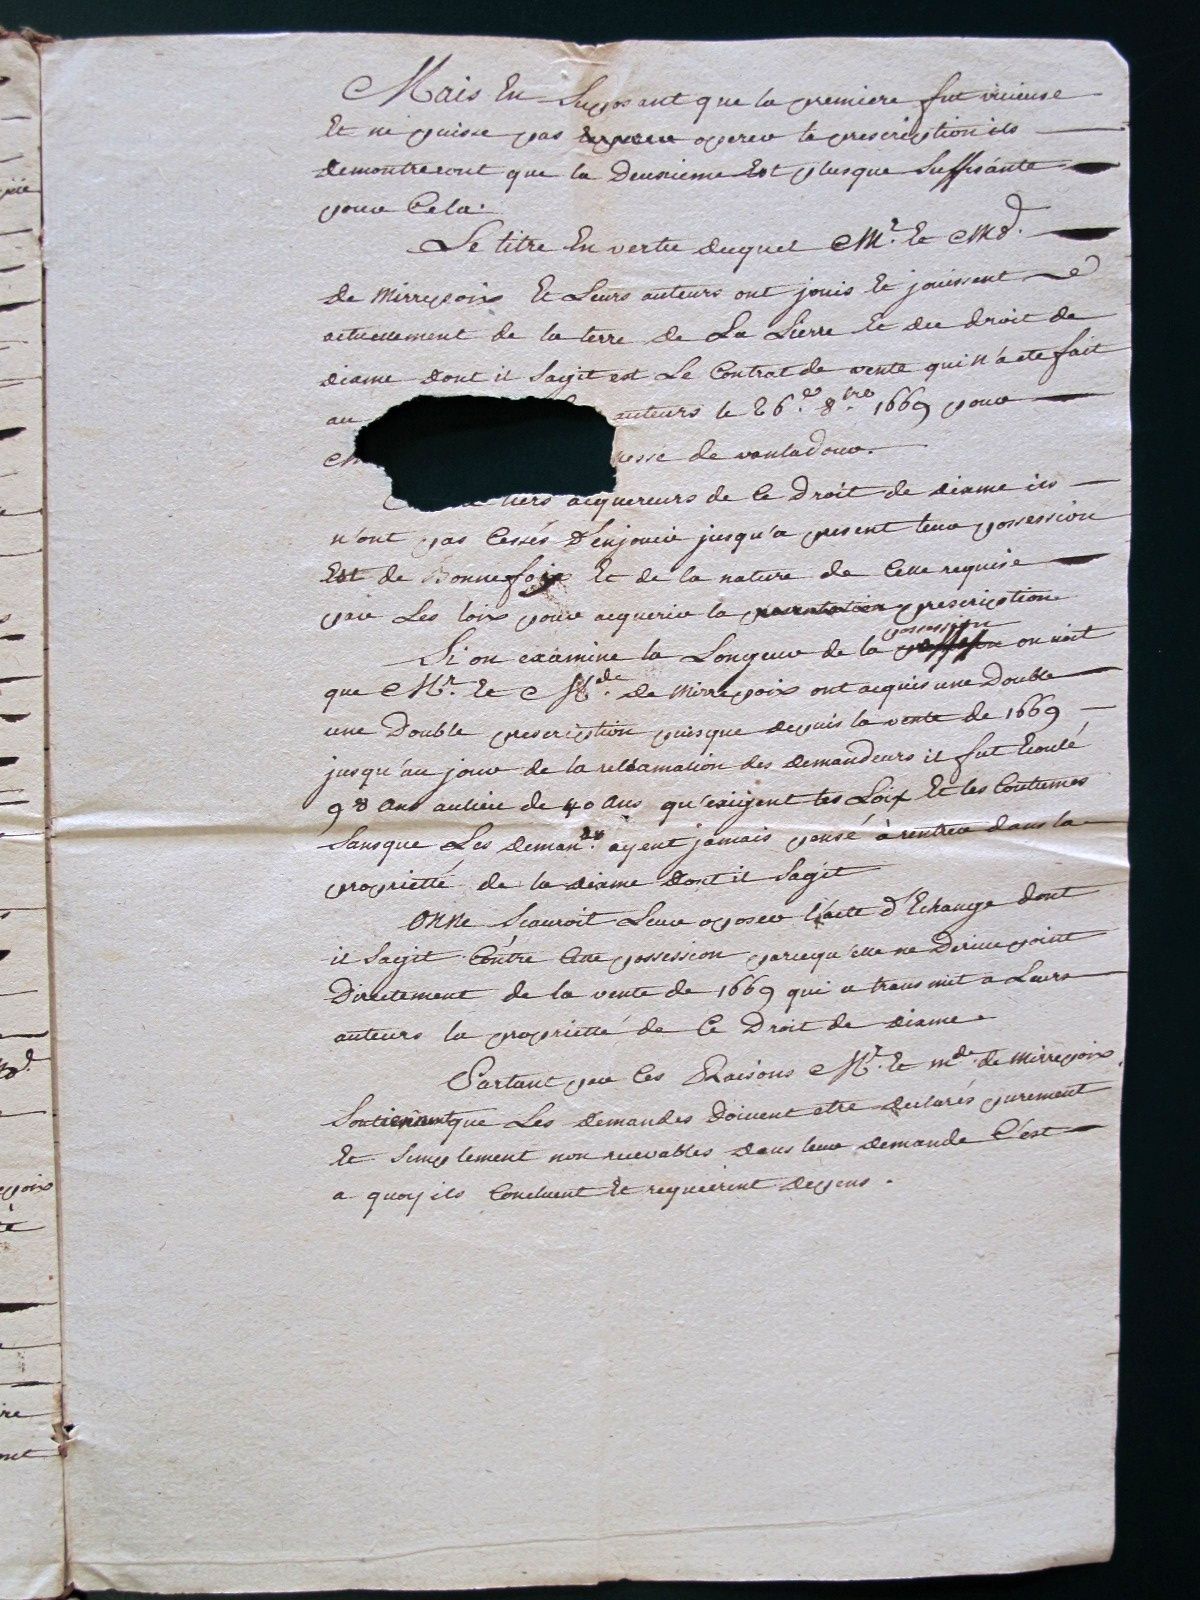 Mais En Suposant que la premiere fut vicieuse
Et ne puisse pas operer la prescription ils
demontreront que la Deuxieme Est plusque Suffisante
pour Cela.
Le titre En vertu duquel Mr. Et Md.
de Mirrepoix Et Leurs auteurs ont jouis Et jouissent
actuellement de la terre de La Lierre Et du droit de
dixme dont il Sagit est Le Contrat de vente qui n'a ete fait
au auteurs le 26.e 8.bre 1669 pour
de vantadour.
tiers acquereurs de Ce Droit de dixme ils
n'ont pas Cessés D'enjouir jusqu'a present leur possession
Est de Bonnefoix Et de la nature de Celle requise
par Les loix pour acquerir la prescription
possession
Si on examine la Longeur de la on voit
que Mr. Et Mde. de Mirrepoix ont acquis une Double
une Double prescription puisque depuis la vente de 1669
jusqu'au jour de la reclamation des demandeurs il fut Ecoulé
98 ans aulieu de 40 ans qu'exigent les Loix Et les Coutumes
Sansque Les deman.rs ayent jamais pensé à rentrer dans la
proprietté de la dixme dont il Sagit
Onne Scauroit Leur oposer l'acte d'Echange dont
il Sagit Contre Cette possession parcequ'elle ne Derive point
Directement de la vente de 1669 qui a transmit a Leurs
auteurs la proprietté de Ce Droit de dixme.
Partant par Ces Raisons Mr. Et mde. de Mirrepoix
Soutiennent que Les demandes Doivent etre declarés purement
Et Simplement non recevables dans leur demande C'est
a quoy ils Concluent Et requierent depens.